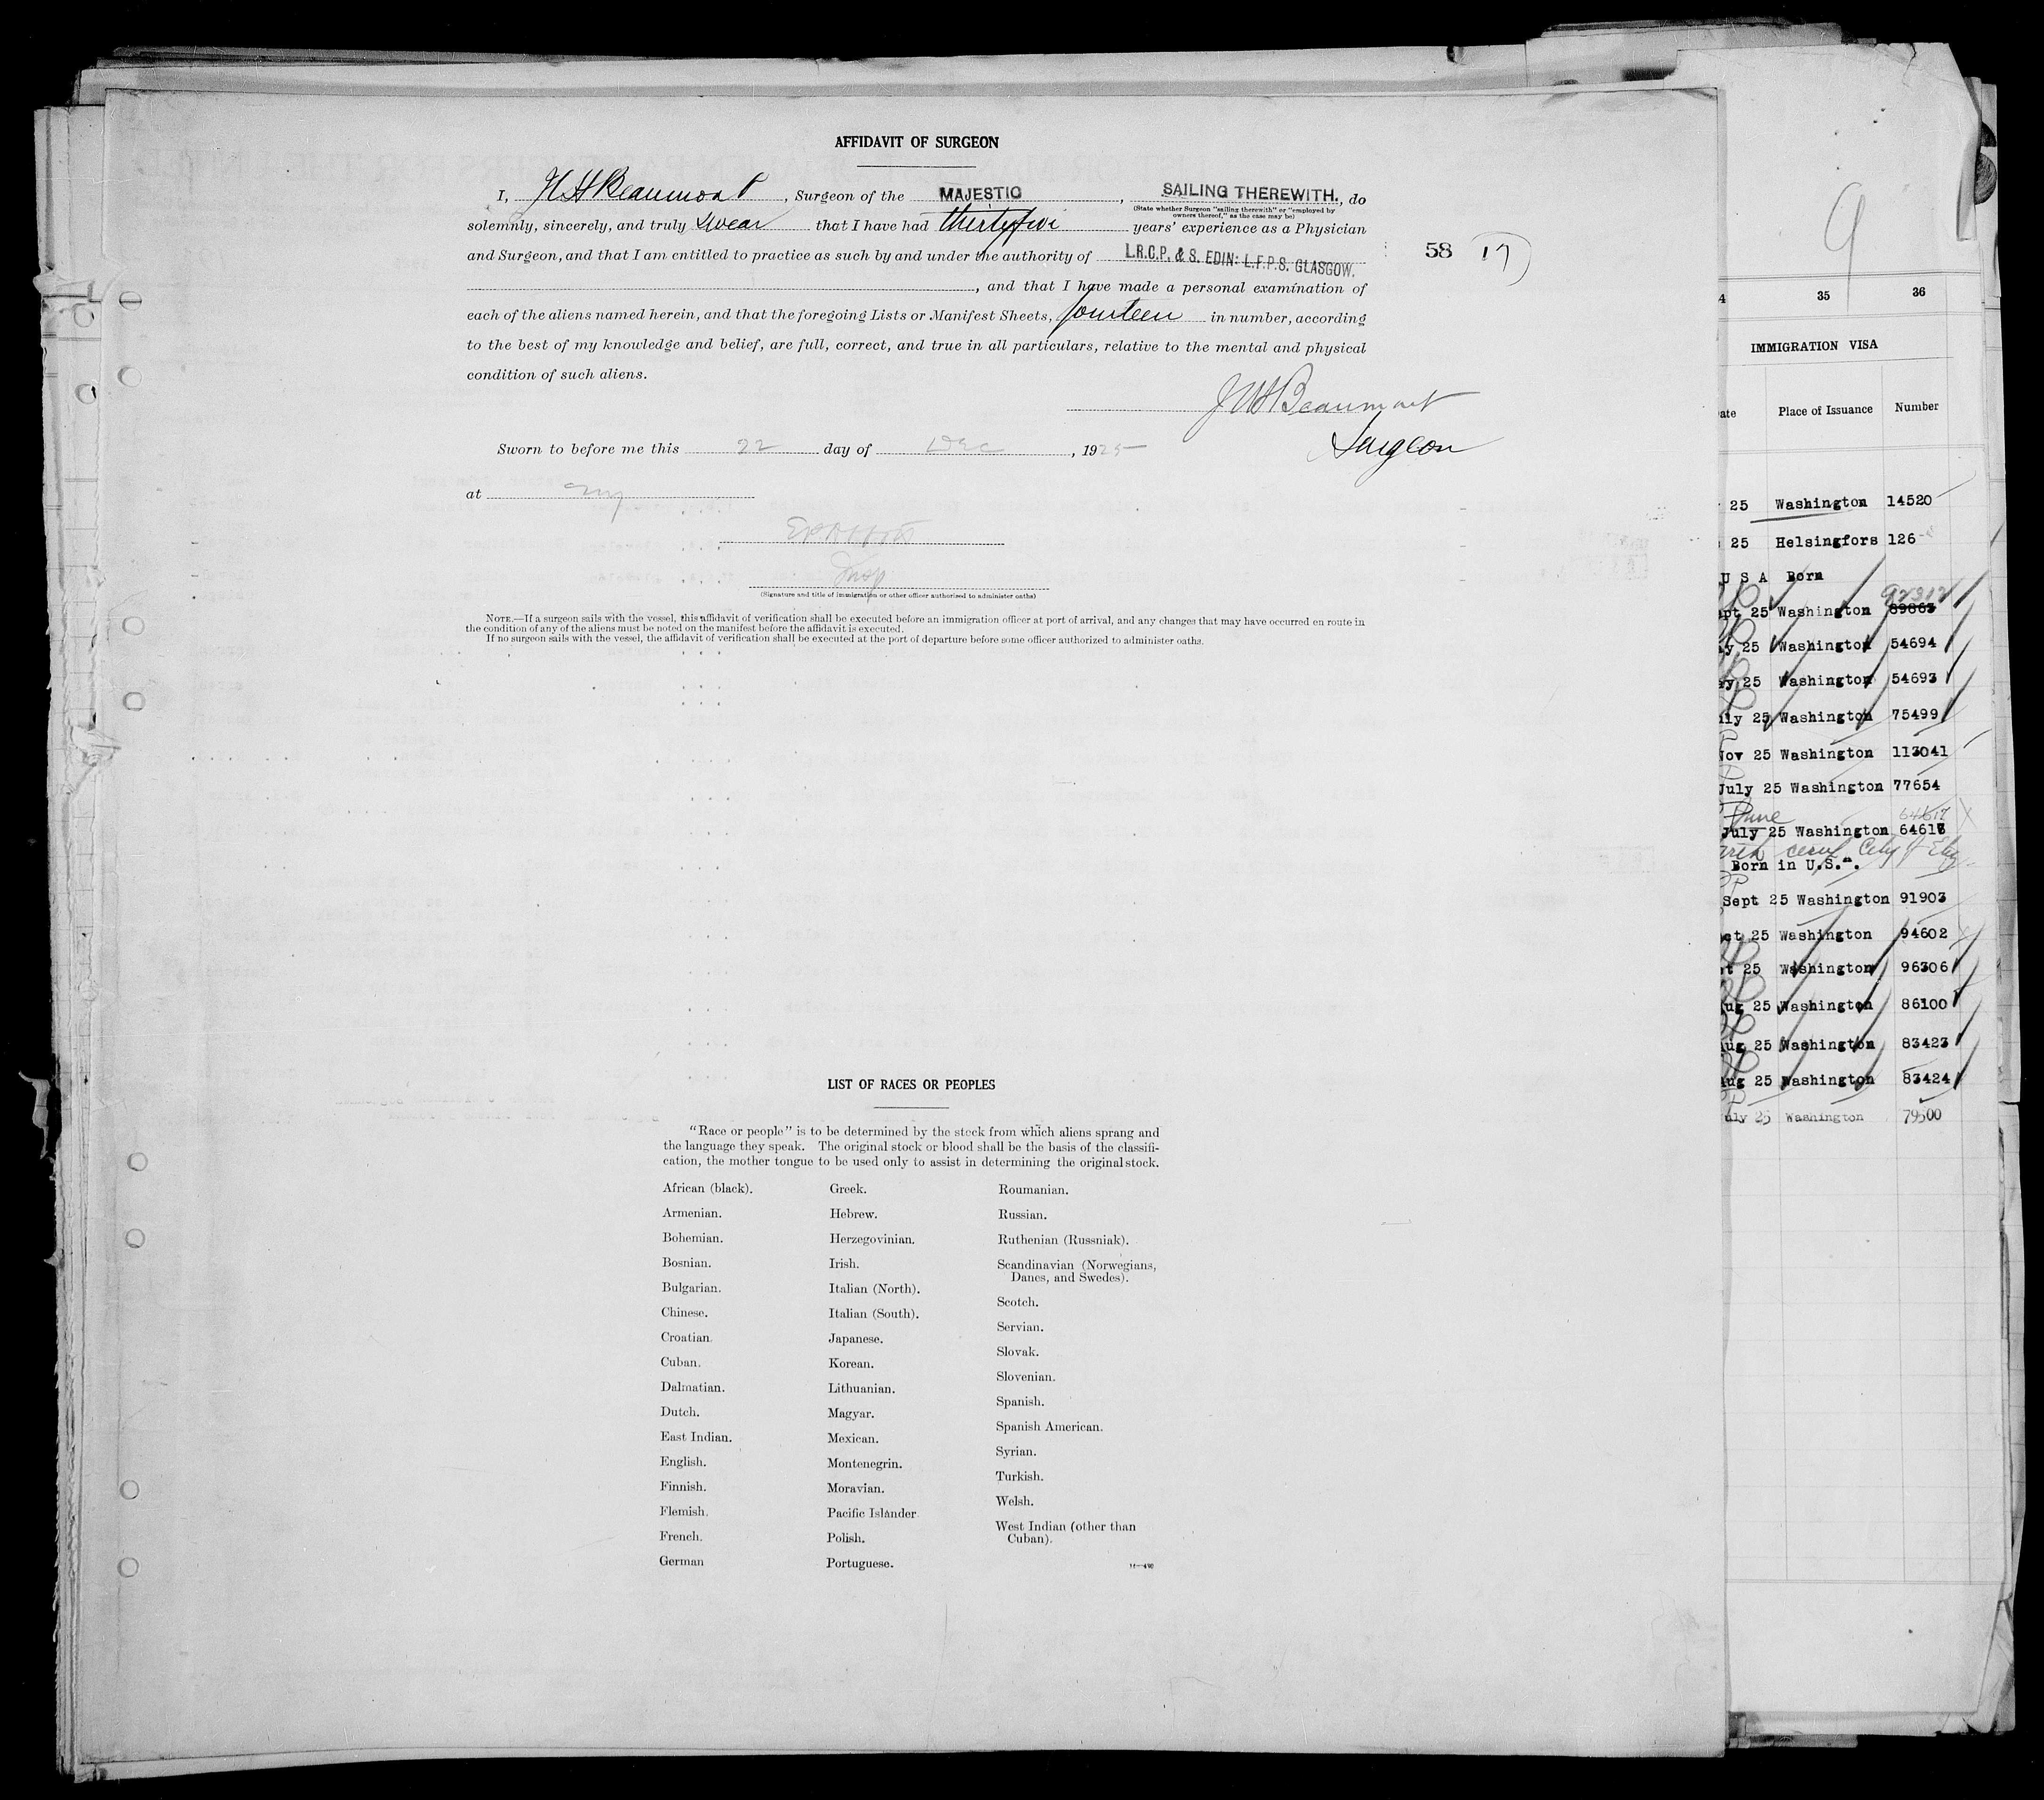 AFFIDAVIT OF SURGEON
I, J W H Beaumont, Surgeon of the MAJESTIC, SAILING THEREWITH., do
(State whether Surgeon "sailing therewith" or "employed by
owners thereof," as the case may be)
solemnly, sincerely, and truly swear that I have had thirtyfive years' experience as a Physician
and Surgeon, and that I am entitled to practice as such by and under the authority of L.R.C.P. & S. EDIN: L.F.P.S. GLASGOW.
58 17
, and that I have made a personal examination of
each of the aliens named herein, and that the foregoing Lists or Manifest Sheets, fourteen in number, according
to the best of my knowledge and belief, are full, correct, and true in all particulars, relative to the mental and physical
condition of such aliens.
J W H Beaumont
Surgeon
Sworn to before me this 22 day of Dec, 1925
at NY
Insp
(Signature and title of immigration or other officer authorized to administer oaths)
NOTE.—If a surgeon sails with the vessel, this affidavit of verification shall be executed before an immigration officer at port of arrival, and any changes that may have occurred en route in
the condition of any of the aliens must be noted on the manifest before the affidavit is executed.
If no surgeon sails with the vessel, the affidavit of verification shall be executed at the port of departure before some officer authorized to administer oaths.
LIST OF RACES OR PEOPLES
"Race or people" is to be determined by the stock from which aliens sprang and
the language they speak. The original stock or blood shall be the basis of the classifi-
cation, the mother tongue to be used only to assist in determining the original stock.
African (black).
Armenian.
Bohemian.
Bosnian.
Bulgarian.
Chinese.
Croatian.
Cuban.
Dalmatian.
Dutch.
East Indian.
English.
Finnish.
Flemish.
French.
German
Greek.
Hebrew.
Herzegovinian.
Irish.
Italian (North).
Italian (South).
Japanese.
Korean.
Lithuanian.
Magyar.
Mexican.
Montenegrin.
Moravian.
Pacific Islander
Polish.
Portuguese.
Roumanian.
Russian.
Ruthenian (Russniak).
Scandinavian (Norwegians,
Danes, and Swedes).
Scotch.
Servian.
Slovak.
Slovenian.
Spanish.
Spanish American.
Syrian.
Turkish.
Welsh.
West Indian (other than
Cuban).
9
4 35 36
IMMIGRATION VISA
ate Place of Issuance Number
25 Washington 14520
25 Helsingfors 126
U S A Born
92312
pt 25 Washington 89863
y 25 Washington 54694
y 25 Washington 54693
ly 25 Washington 75499
Nov 25 Washington 113041
July 25 Washington 77654
June 64617
July 25 Washington 64618
Born in U.S.
Sept 25 Washington 91903
ct 25 Washington 94602
t 25 Washington 96306
ug 25 Washington 86100
ug 25 Washington 83423
Aug 25 Washington 83424
uly 25 Washington 79500